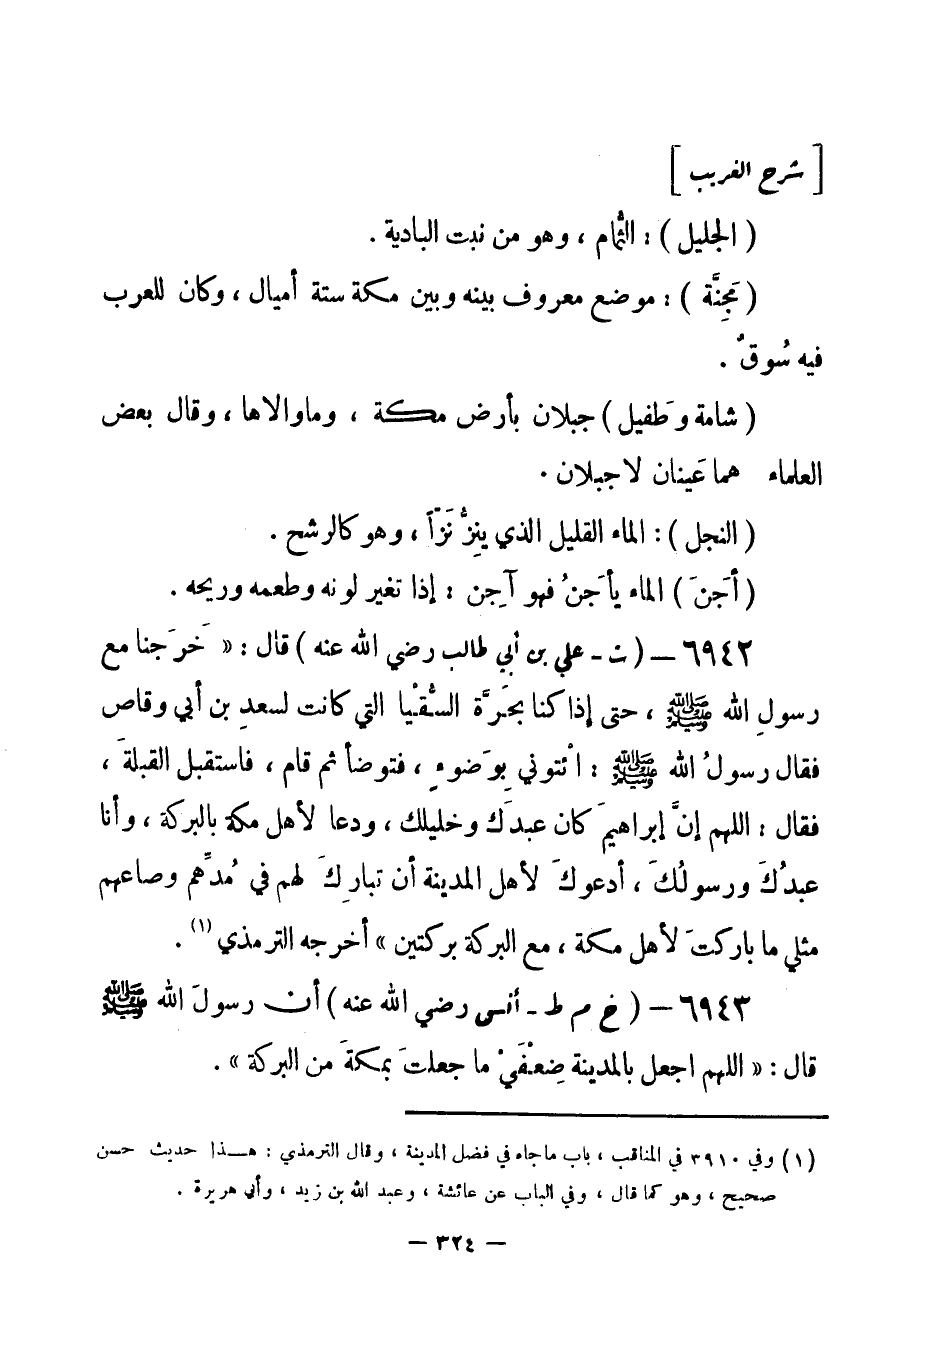 [ شرح الغريب ]
( الجليل ) : الثُّمام ، وهو من نبت البادية .
( مَجِنَّة ) : موضع معروف بينه وبين مكة ستة أميال ، وكان للعرب
فيه سُوقٌ .
( شامة وَطفيل ) جبلان بأرض مكة ، وماوالاها ، وقال بعض
العلماء هما عَينان لا جبلان .
( النجل ) : الماء القليل الذي ينِزُّ نَزّاً ، وهو كالرشح .
( أجَنَ ) الماء يأجَنُ فهو آجِن : إذا تغير لونه وطعمه وريحه .
٦٩٤٢ – ( ت - علي بن أبي طالب رضي الله عنه ) قال : « خَرَجنا مع
رسولِ الله ﷺ ، حتى إذا كنا بحَرَّة السُّقْيا التي كانت لسعدِ بن أبي وقاص
فقال رسولُ الله ﷺ : ائْتوني بِوَضوءٍ ، فتوضأ ثم قام ، فاستقبل القبلةَ ،
فقال : اللهم إنَّ إبراهيمَ كان عبدَك وخليلك ، ودعا لأهل مكة بالبركة ، وأنا
عبدُكَ ورسولُكَ ، أدعوكَ لأهل المدينة أن تبارِكَ لهم في مُدِّهم وصاعهم
مثلي ما باركتَ لأهل مكة ، مع البركة بركتين » أخرجه الترمذي (١) .
٦٩٤٣ – ( خ م ط - أنس رضي الله عنه ) أن رسولَ الله ﷺ
قال : « اللهم اجعل بالمدينة ضِعْفَيْ ما جعلتَ بمكةَ من البركة » .
(١) وفي ٣٩١٠ في المناقب ، باب ماجاء في فضل المدينة ، وقال الترمذي : هـذا حديث حسن
صحيح ، وهو كما قال ، وفي الباب عن عائشة ، وعبد الله بن زيد ، وأبي هريرة .
– ٣٢٤ –